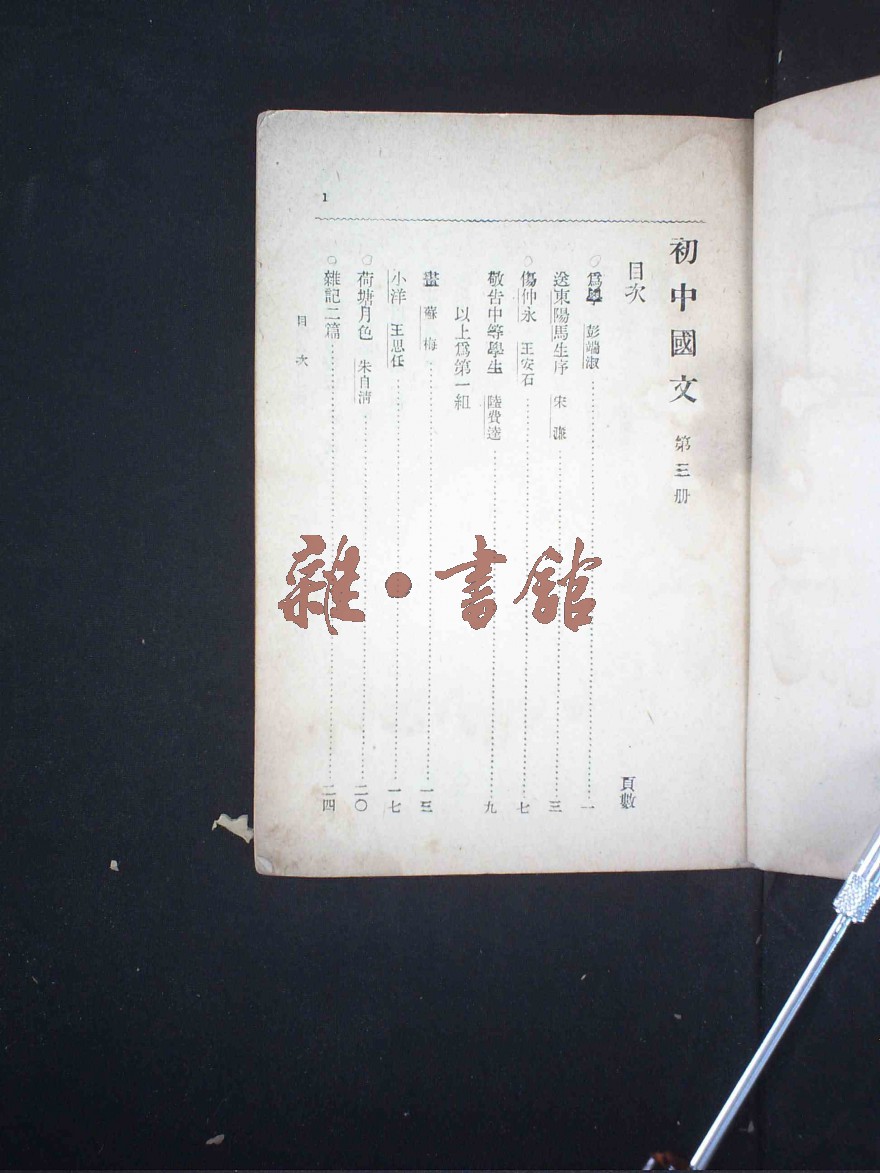 初中國文 第三册
目次 頁數
○爲學 彭端淑 一
送東陽馬生序 宋濂 三
○傷仲永 王安石 七
敬告中等學生 陸費逵 九
以上爲第一組
畫 蘇梅 一三
小洋 王思任 一七
○荷塘月色 朱自清 二〇
○雜記二篇 二四
目次
1
雜·書館